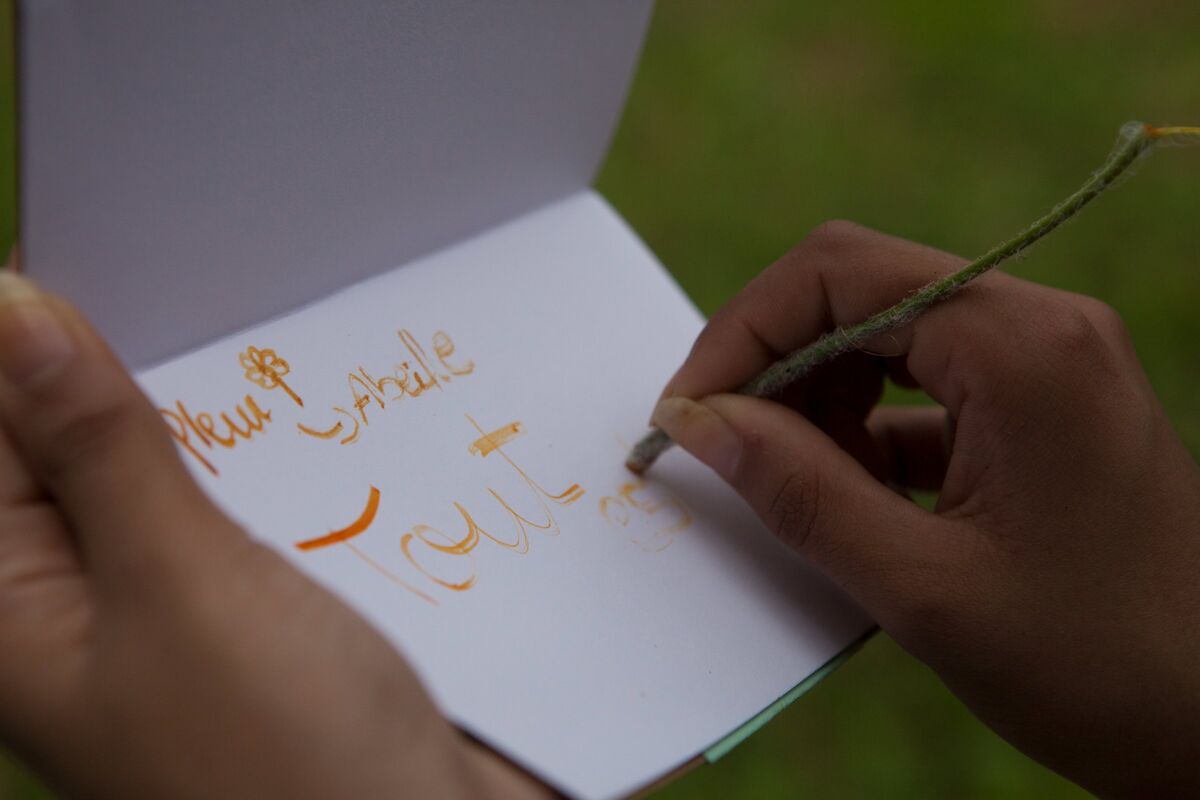 Fleur Abeille
Tout est